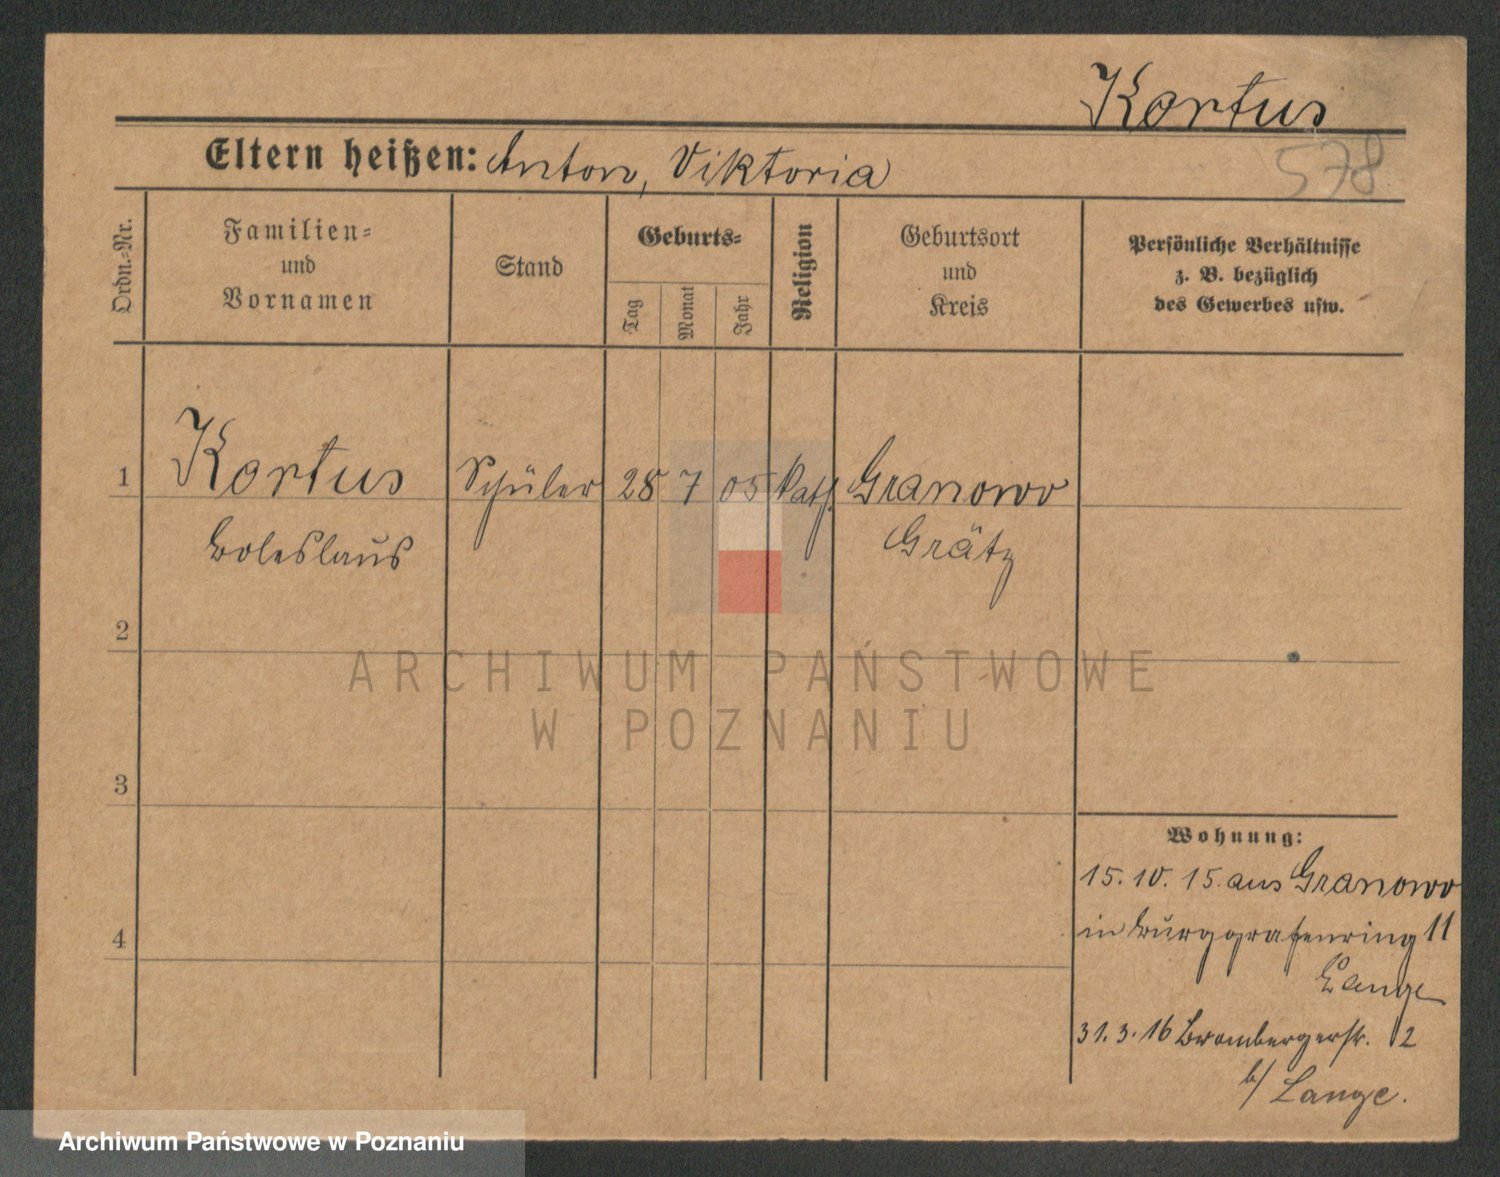 Kortus
578
Eltern heißen: Anton, Viktoria
Ordn.-Nr.
Familien-
und
Vornamen
Stand
Geburts-
Tag
Monat
Jahr
Religion
Geburtsort
und
Kreis
Persönliche Verhältnisse
z. B. bezüglich
des Gewerbes usw.
1 Kortus Schüler 28 7 05 kath. Granowo
Boleslaus Grätz
2
ARCHIWUM PAŃSTWOWE
W POZNANIU
3
Wohnung:
15. 10. 15. aus Granowo
4 in Burggrafenring 11
Lange
31. 3. 16 Brombergerstr. 2
b/ Lange.
Archiwum Państwowe w Poznaniu